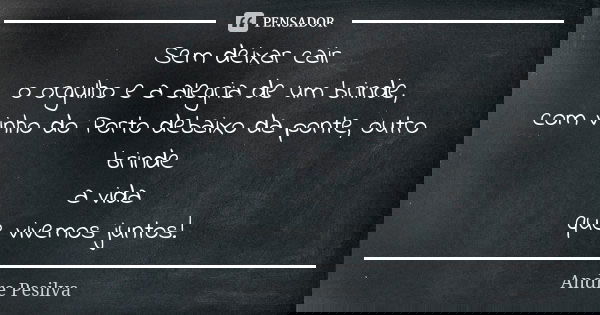 PENSADOR
Sem deixar cair
o orgulho e a alegria de um brinde,
com vinho do Porto debaixo da ponte, outro
brinde
a vida
que vivemos juntos!
Andre Pesilva